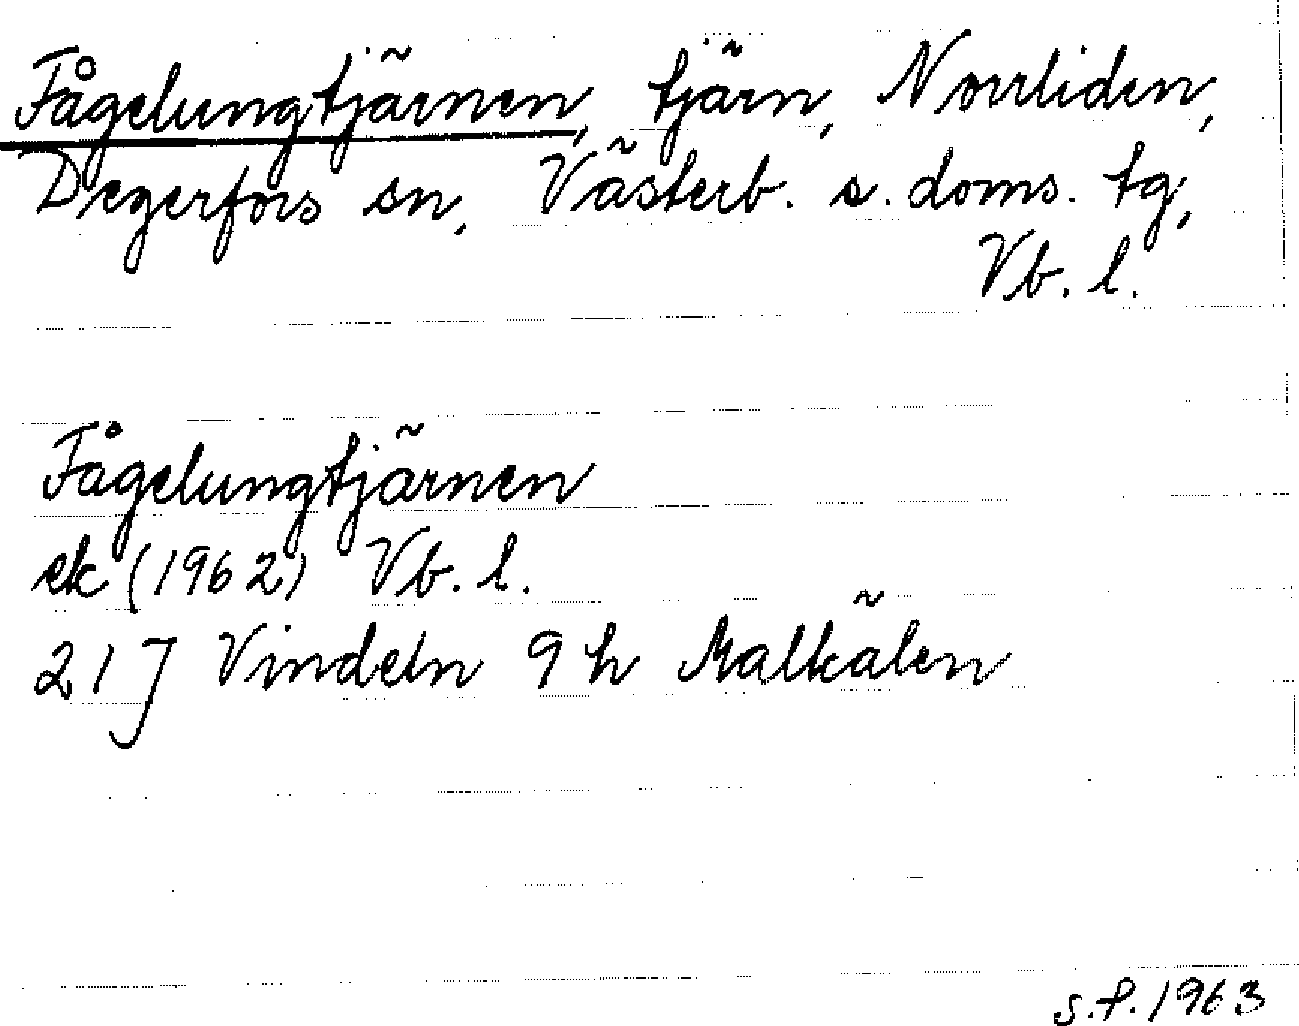 Fågelungtjärnen, tjärn, Norrliden,
Degerfors sn, Västerb. s. doms. tg,
Vb. l.
Fågelungtjärnen
ek (1962) Vb. l.
21J Vindeln 9 h Malkälen
s.f. 1963